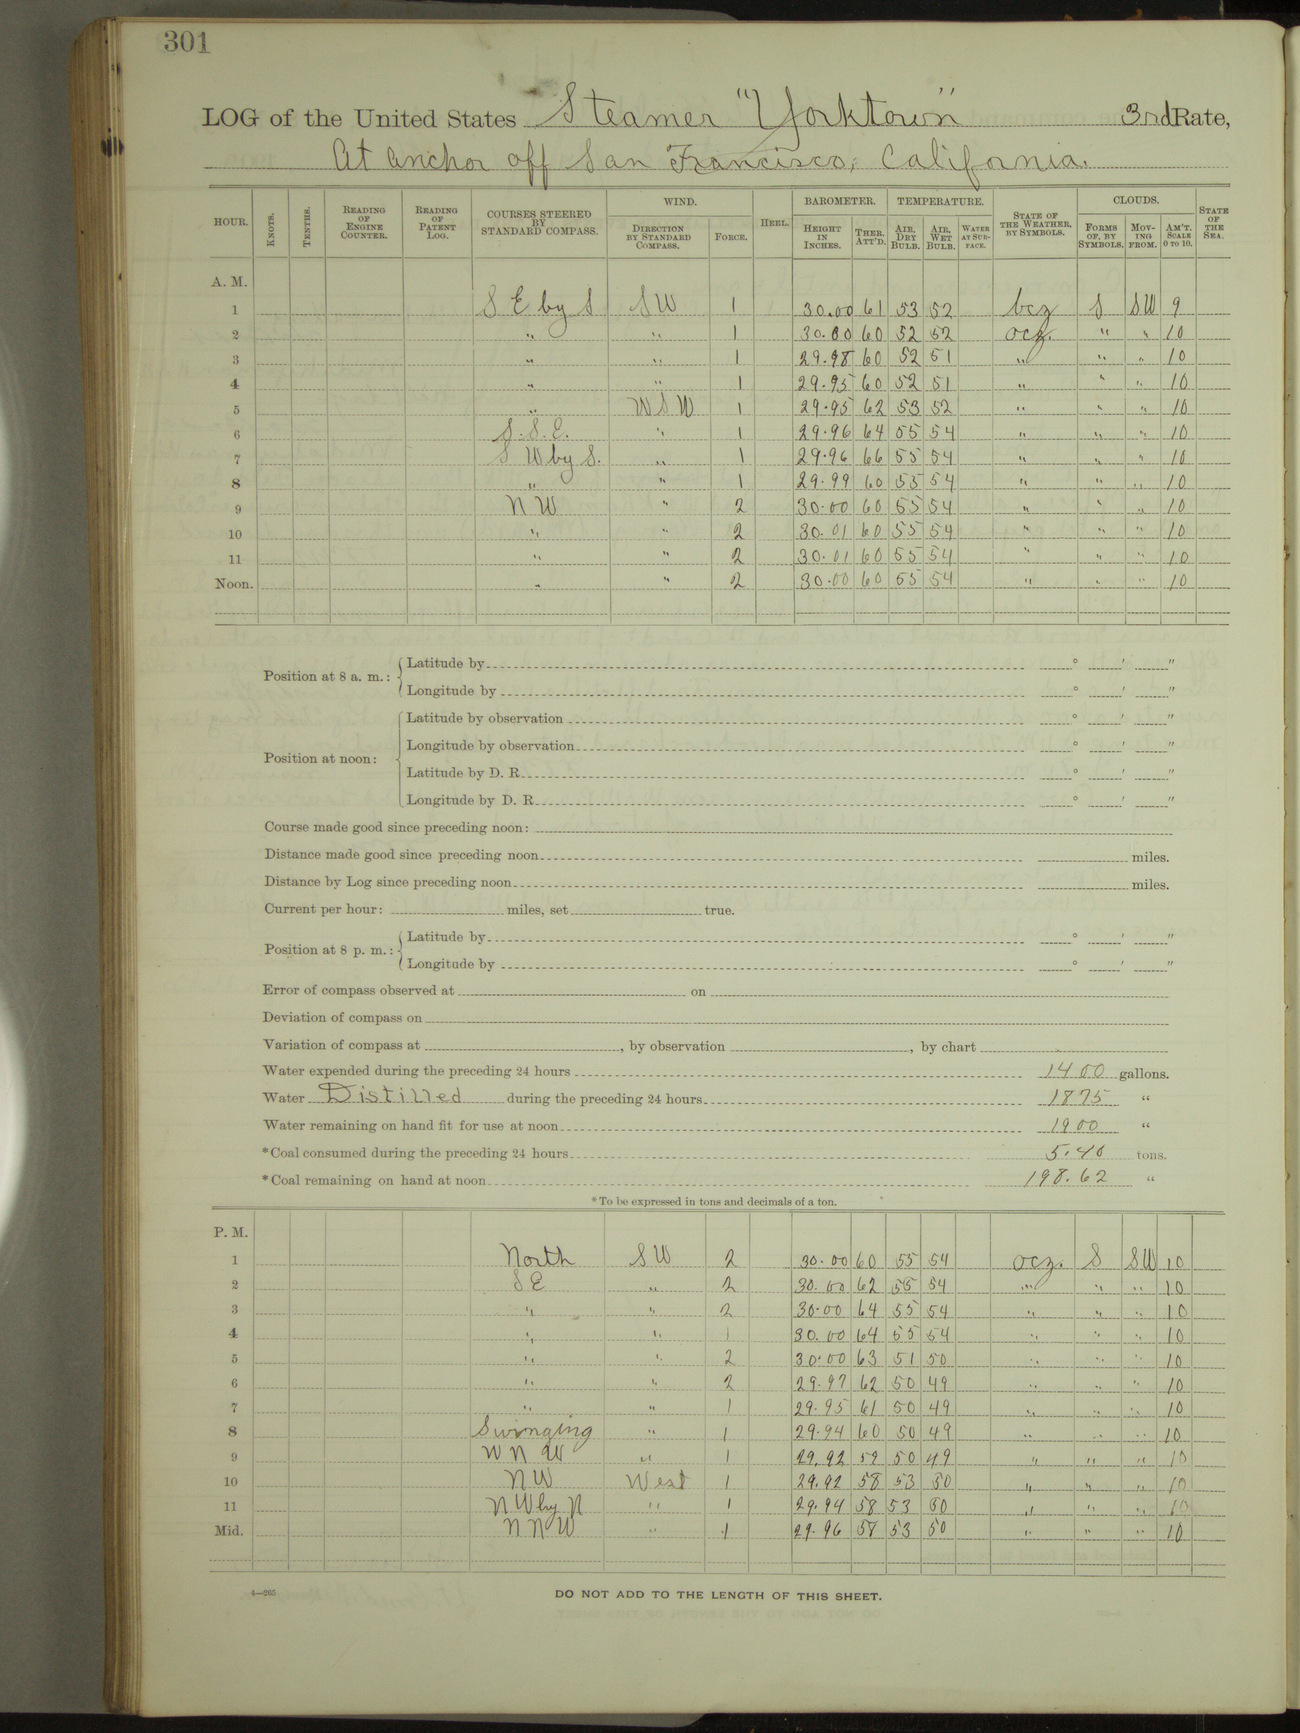 301
LOG of the United States Steamer "Yorktown" 3rd Rate,
At anchor off San Francisco, California.
HOUR. KNOTS. TENTHS. READING OF ENGINE COUNTER. READING OF PATENT LOG. COURSES STEERED BY STANDARD COMPASS. WIND. DIRECTION BY STANDARD COMPASS. FORCE. HEEL. BAROMETER. HEIGHT IN INCHES. THER. ATT'D. TEMPERATURE. AIR, DRY BULB. AIR, WET BULB. WATER AT SURFACE. STATE OF THE WEATHER, BY SYMBOLS. CLOUDS. FORMS OF, BY SYMBOLS. MOVING FROM. AM'T. SCALE 0 TO 10. STATE OF THE SEA.
A. M.
1 S E by S SW 1 30.00 61 53 52 bcz S SW 9
2 " " 1 30.00 60 52 52 ocz. " " 10
3 " " 1 29.98 60 52 51 " " " 10
4 " " 1 29.95 60 52 51 " " " 10
5 " WSW 1 29.95 62 53 52 " " " 10
6 S.S.E. " 1 29.96 64 55 54 " " " 10
7 S W by S. " 1 29.96 66 55 54 " " " 10
8 " " 1 29.99 60 55 54 " " " 10
9 NW " 2 30.00 60 55 54 " " " 10
10 " " 2 30.01 60 55 54 " " " 10
11 " " 2 30.01 60 55 54 " " " 10
Noon. " " 2 30.00 60 55 54 " " " 10
Position at 8 a. m.: Latitude by ° ′ ″
Longitude by ° ′ ″
Position at noon: Latitude by observation ° ′ ″
Longitude by observation ° ′ ″
Latitude by D. R. ° ′ ″
Longitude by D. R. ° ′ ″
Course made good since preceding noon:
Distance made good since preceding noon miles.
Distance by Log since preceding noon miles.
Current per hour: miles, set true.
Position at 8 p. m.: Latitude by ° ′ ″
Longitude by ° ′ ″
Error of compass observed at on
Deviation of compass on
Variation of compass at , by observation , by chart
Water expended during the preceding 24 hours 1400 gallons.
Water Distilled during the preceding 24 hours 1875 "
Water remaining on hand fit for use at noon 1900 "
*Coal consumed during the preceding 24 hours 5.40 tons.
*Coal remaining on hand at noon 198.62 "
*To be expressed in tons and decimals of a ton.
P. M.
1 North SW 2 30.00 60 55 54 ocz. S SW 10
2 SE " 2 30.00 62 55 54 " " " 10
3 " " 2 30.00 64 55 54 " " " 10
4 " " 1 30.00 64 55 54 " " " 10
5 " " 2 30.00 63 51 50 " " " 10
6 " " 2 29.97 62 50 49 " " " 10
7 " " 1 29.95 61 50 49 " " " 10
8 Swinging " 1 29.94 60 50 49 " " " 10
9 WNW " 1 29.92 59 50 49 " " " 10
10 NW West 1 29.92 58 53 50 " " " 10
11 NW by N " 1 29.94 58 53 50 " " " 10
Mid. NNW " 1 29.96 58 53 50 " " " 10
4—265
DO NOT ADD TO THE LENGTH OF THIS SHEET.